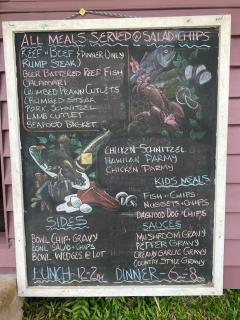 ALL MEALS SERVED @ SALAD & CHIPS
REEF n' BEEF } DINNER ONLY
RUMP STEAK
BEER BATTERED REEF FISH
CALAMARI
CRUMBED PRAWN CUTLETS
CRUMBED STEAK
PORK SCHNITZEL
LAMB CUTLET
SEAFOOD BASKET
CHICKEN SCHNITZEL
HAWIIAN PARMY
CHICKEN PARMY
KIDS MEALS
FISH & CHIPS
NUGGETS & CHIPS
DAGWOOD DOG & CHIPS
SIDES
BOWL CHIP & GRAVY
BOWL SALAD & CHIPS
BOWL WEDGES @ LOT
SAUCES
MUSHROOM GRAVY
PEPPER GRAVY
CREAMY GARLIC GRAVY
COUNTRY STYLE GRAVY
LUNCH 12-2pm DINNER - 6-8